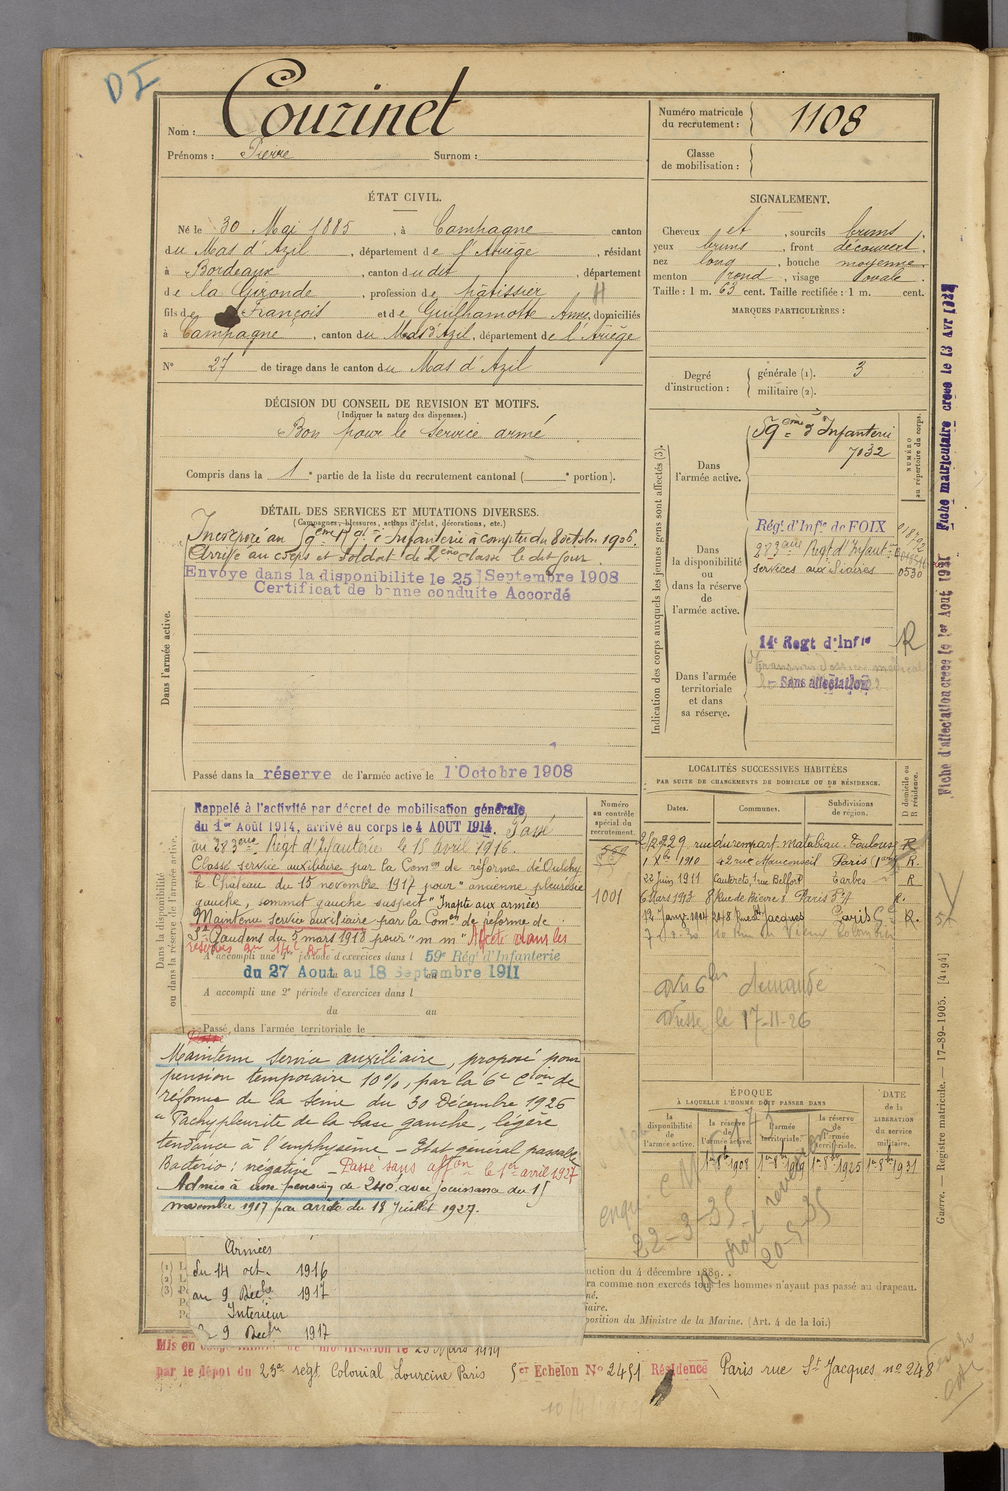 DI
Nom : Couzinet
Prénoms : Pierre Surnom :
Numéro matricule du recrutement : 1108
Classe de mobilisation :
ÉTAT CIVIL.
Né le 30 Mai 1885, à Campagne canton
du Mas d'Azil, département de l'Ariège, résidant
à Bordeaux, canton du dit, département
de la Gironde, profession de pâtissier
fils de François et de Guilhamotte Anne, domiciliés
à Campagne, canton du Mas d'Azil, département de l'Ariège
N° 27 de tirage dans le canton du Mas d'Azil
SIGNALEMENT.
Cheveux et, sourcils bruns
yeux bruns, front découvert.
nez long, bouche moyenne
menton rond, visage ovale.
Taille : 1 m. 63 cent. Taille rectifiée : 1 m. cent.
MARQUES PARTICULIÈRES :
Degré d'instruction : générale (1). 3
militaire (2).
DÉCISION DU CONSEIL DE REVISION ET MOTIFS.
(Indiquer la nature des dispenses.)
Bon pour le service armé
Compris dans la 1e partie de la liste du recrutement cantonal ( e portion).
DÉTAIL DES SERVICES ET MUTATIONS DIVERSES.
(Campagnes, blessures, actions d'éclat, décorations, etc.)
Dans l'armée active.
Incorporé au 59ème Rgt d'Infanterie à compter du 8 octobre 1906.
Arrivé au corps et soldat de 2ème classe le dit jour.
Envoyé dans la disponibilité le 25 Septembre 1908
Certificat de bonne conduite Accordé
Passé dans la réserve de l'armée active le 1 Octobre 1908
Indication des corps auxquels les jeunes gens sont affectés (3).
NUMÉRO au répertoire du corps.
Dans l'armée active.
59ème d'Infanterie
7032
Dans la disponibilité ou dans la réserve de l'armée active.
Régt d'Infie de FOIX
283ème Régt d'Infant
services auxiliaires
0530
Dans l'armée territoriale et dans sa réserve.
14e Regt d'Infie R
Sans affectation
Fiche d'affectation créée le 1er Aout 1921 Fiche matriculaire créée le 13 Avr
Dans la disponibilité ou dans la réserve de l'armée active.
Rappelé à l'activité par décret de mobilisation générale
du 1er Août 1914, arrivé au corps le 4 AOUT 1914. Passé
au 283ème Régt d'Infanterie le 18 avril 1916.
Classé service auxiliaire par la Comon de réforme d'Oulchy
le Château du 15 novembre 1917 pour "ancienne pleurésie
gauche, sommet gauche suspect" Inapte aux armées
Maintenu service auxiliaire par la Comon de réforme de
St Gaudens du 5 mars 1918 pour "m m" Affecté dans les
A accompli une 1e période d'exercices dans l 59e Rég. d'Infanterie
du 27 Aout au 18 Septembre 1911
A accompli une 2e période d'exercices dans l
du au
Passé dans l'armée territoriale le
Numéro au contrôle spécial du recrutement.
1001
LOCALITÉS SUCCESSIVES HABITÉES
PAR SUITE DE CHANGEMENTS DE DOMICILE OU DE RÉSIDENCE.
Dates. Communes. Subdivisions de région. D domicile ou R résidence.
29 rue du rempart Matabiau Toulouse R
1 Xbre 1910 42 rue Mauconseil Paris R.
22 Juin 1911 Cauterets, rue Belfort Tarbes R
6 Mars 1913 8 Rue de Bièvres Paris R.
248 Rue St Jacques Paris R.
demande
adresse le 17-11-26
Maintenu service auxiliaire, proposé pour
pension temporaire 10%, par la 6e Cion de
réforme de la Seine du 30 Décembre 1926
"Pachypleurite de la base gauche, légère
tendance à l'emphysème – Etat général passable
Bactério : négative – Passé sans affon le 1er avril 1927
Admis à une pension de 240f avec jouissance du 15
novembre 1917 par arrêté du 18 Juillet 1927.
Armées
du 14 oct. 1916
au 9 Decbre 1917
Intérieur
9 Decbre 1917
ÉPOQUE
À LAQUELLE L'HOMME DOIT PASSER DANS
la disponibilité de l'armée active. la réserve de l'armée active. l'armée territoriale. la réserve de l'armée territoriale.
DATE de la LIBÉRATION du service militaire.
1er 8bre 1908 1er 8bre 1919 1er 8bre 1925 1er 8bre 1931
22-3-35
20-5-35
nction du 4 décembre 1889.
ra comme non exercés tous les hommes n'ayant pas passé au drapeau.
position du Ministre de la Marine. (Art. 4 de la loi.)
Guerre. — Registre matricule. — 17-89-1905. [4194]
Mis en
par le dépôt du 23e regt Colonial Lourcine Paris 5er Echelon N° 2451 Résidence Paris rue St Jacques no 248